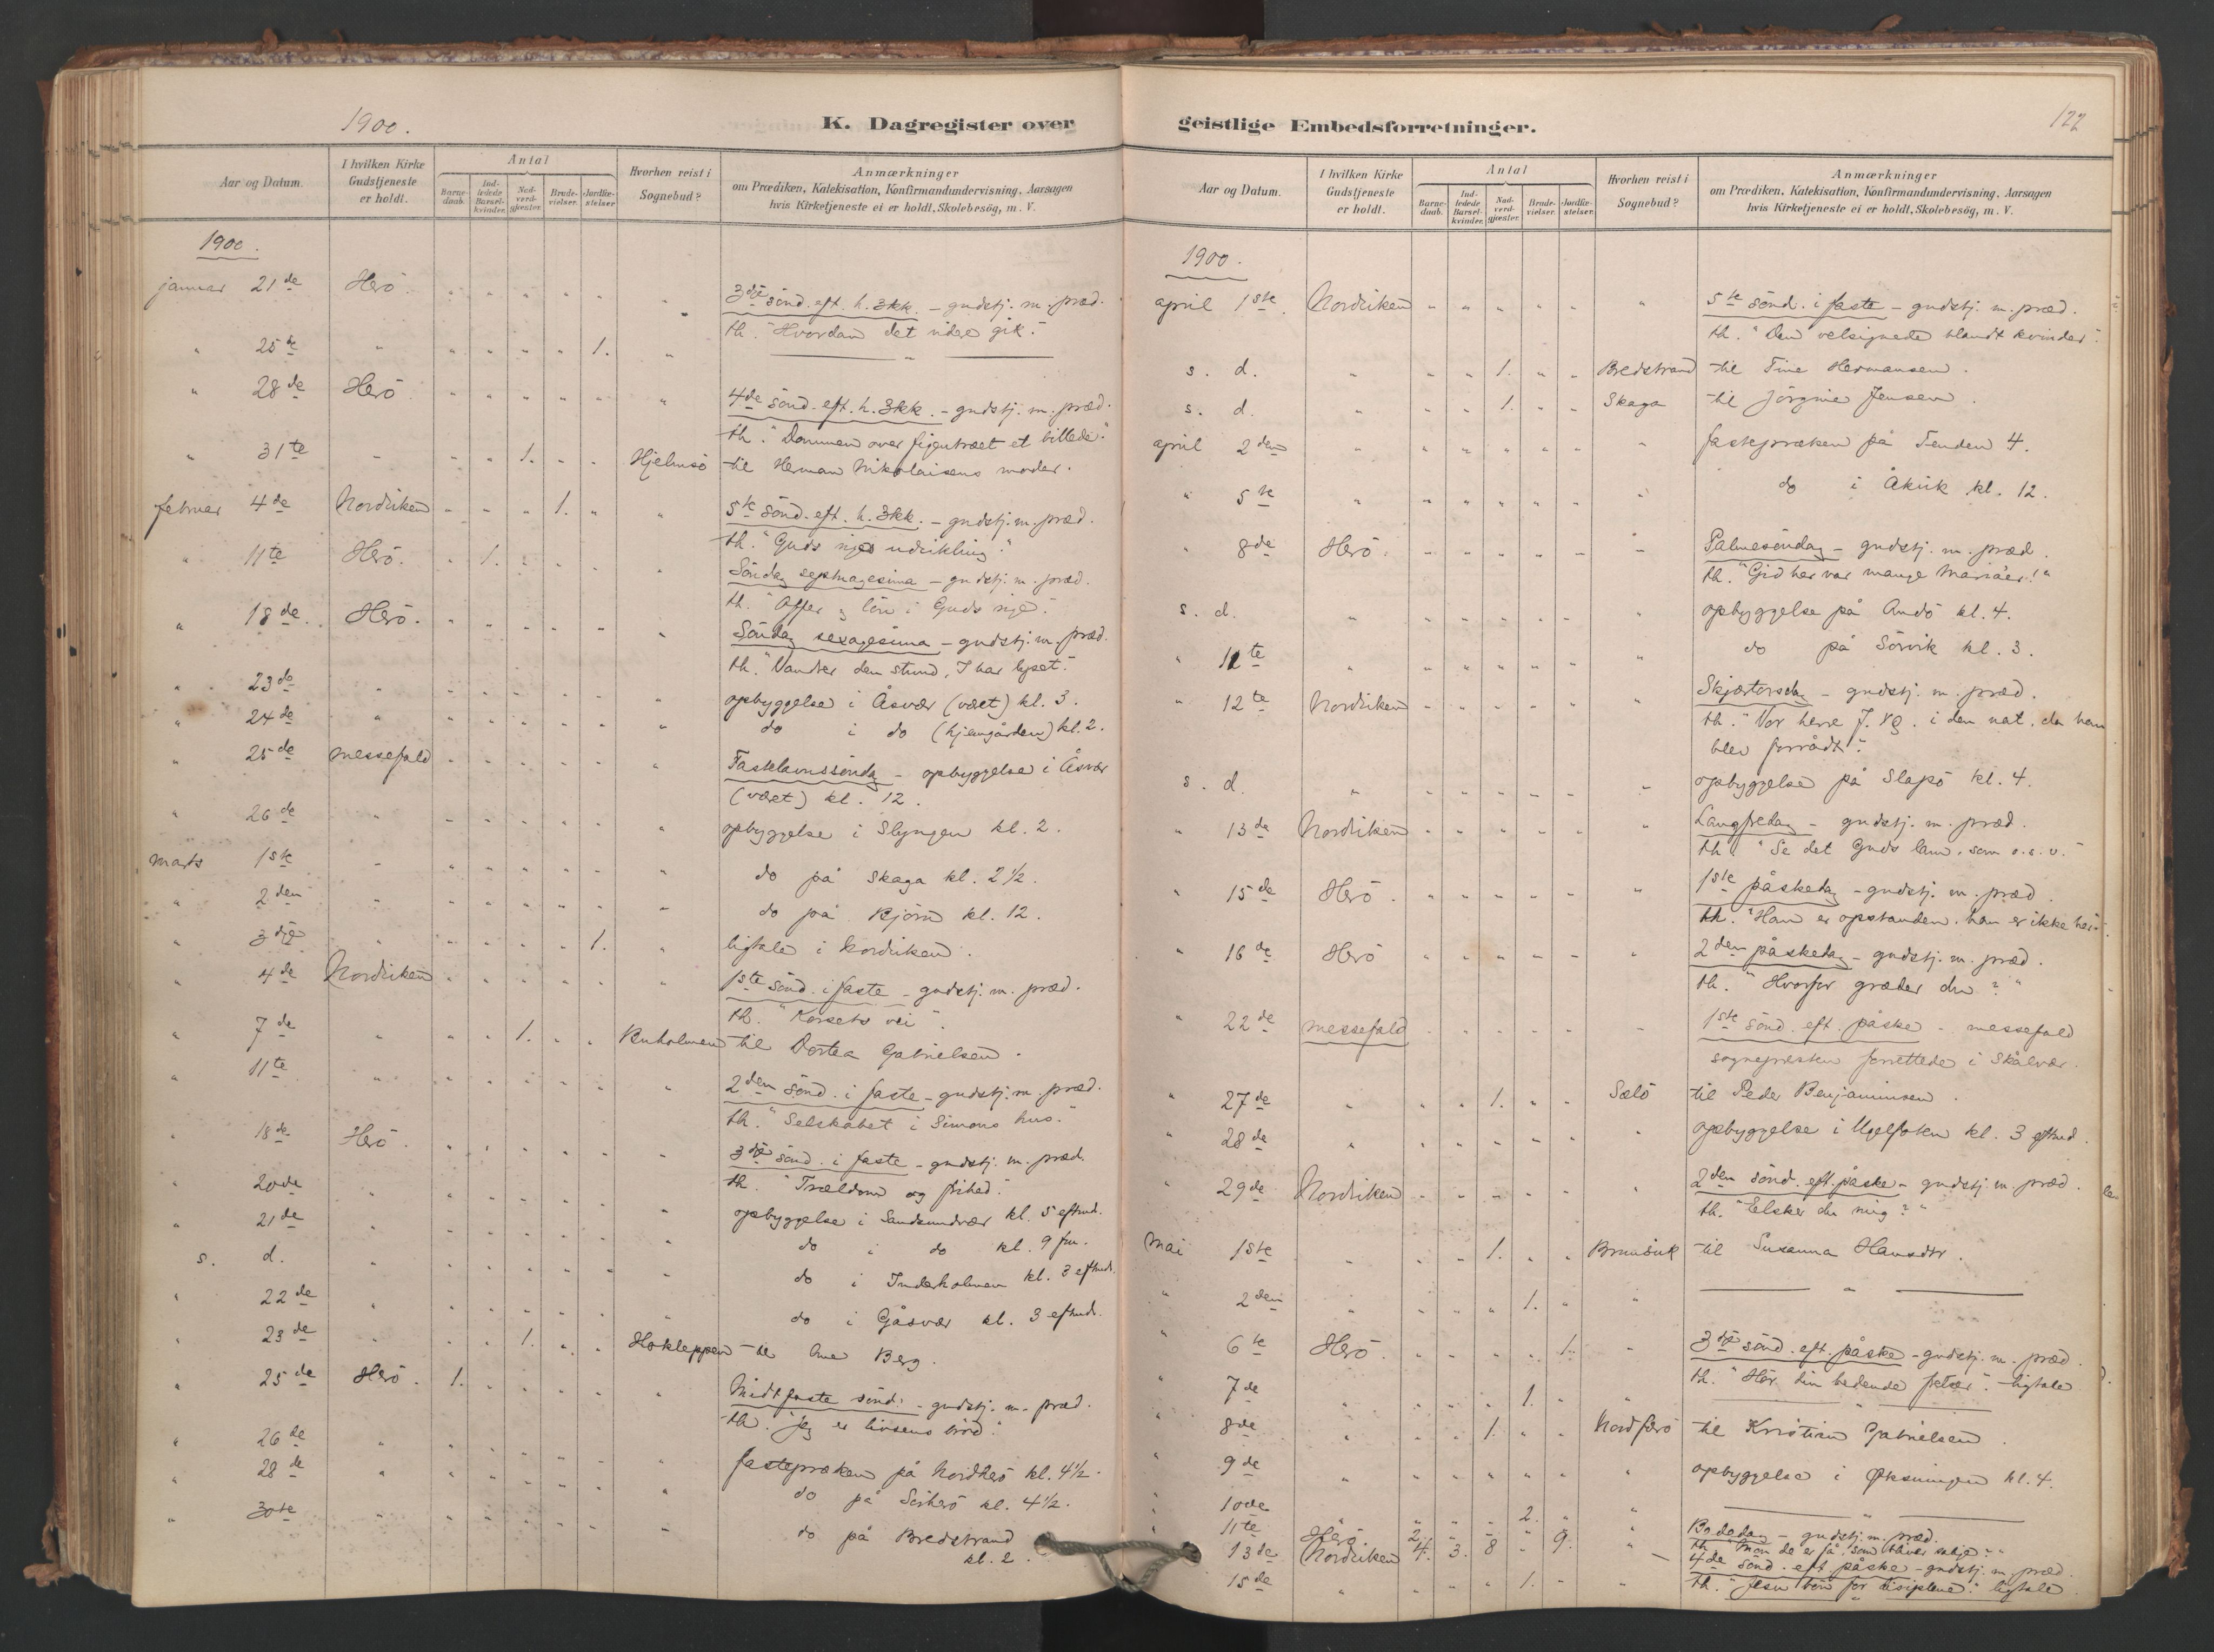 1900.
K. Dagregister over
Aar og Datum.
I hvilken Kirke Gudstjeneste er holdt.
Antal
Barne-daab.
Ind-ledede Barsel-kvinder.
Nad-verd-gjæster.
Brude-vielser.
Jordfæ-stelser
Hvorhen reist i Sognebud?
Anmærkninger
om Prædiken, Katekisation, Konfirmandundervisning, Aarsagen
hvis Kirketjeneste ei er holdt, Skolebesög, m. V.
1900.
januar 21de Herö. 3dje sönd. eft. h. 3kk. - gudstj. m. præd.
th. "Hvordan det videre gik."
" 25de " 1. "
" 28de Herö 4de sönd. eft. h. 3kk. - gudstj. m. præd.
th. "Dommen over figentræet et billede."
" 31te 1. Hjelmsö til Herman Nikolaisens moder.
februar 4de Nordviken 1. 5te sönd. eft. h. 3kk. - gudstj. m. præd.
th. "Guds riges udvikling."
" 11te Herö. 1. Söndag septuagesima - gudstj. m. præd.
th. "Offer og lön i Guds rige."
" 18de. Herö. Söndag sexagesima - gudstj. m. præd.
th. "Vandrer den stund, I har lyset."
" 23de " opbyggelse i Åsvær (været) kl. 3.
" 24de " do i do (hjemgården) kl. 2.
" 25de messefald Fastelavnssöndag - opbyggelse i Åsvær
(været) kl. 12.
" 26de " opbyggelse i Slyngen kl. 2.
marts 1ste do på Skaga kl. 2 1/2.
" 2den " do på Bjørn kl. 12.
" 3dje " 1. ligtale i Nordviken.
" 4de Nordviken 1ste sönd. i faste - gudstj. m. præd.
th. "Korsets vei".
" 7de " 1. til Dortea Gabrielsen.
" 11te " 2den sönd. i faste - gudstj. m. præd.
th. "Selskabet i Simons hus."
" 18de Herö. 3dje sönd. i faste - gudstj. m. præd.
th. "Trældom og frihed."
" 20de " opbyggelse i Sandsundvær kl. 5 eftmd.
" 21de " do i do kl. 9 fm.
s. d. " do i Inderholmen kl. 3 eftmd.
" 22de " do i Gåsvær kl. 3 eftmd.
" 23de " 1. til Ane Berg.
" 25de Herö. 1. Midtfaste sönd. - gudstj. m. præd.
th. "Jeg er livsens bröd."
" 26de " fastepræken på Nordherö kl. 4 1/2.
" 28de " do på Sörherö kl. 4 1/2.
" 30te do på Bredstrand
kl. 2.
122
geistlige Embedsforretninger.
Aar og Datum.
I hvilken Kirke Gudstjeneste er holdt.
Antal
Barne-daab.
Ind-ledede Barsel-kvinder.
Nad-verd-gjæster.
Brude-vielser.
Jordfæ-stelser.
Hvorhen reist i Sognebud?
Anmærkninger
om Prædiken, Katekisation, Konfirmandundervisning, Aarsagen
hvis Kirketjeneste ei er holdt, Skolebesög, m. V.
1900.
april 1ste. Nordviken 5te sönd. i faste - gudstj. m. præd.
th. "Den velsignede blandt kvinder."
s. d. " 1. Bredstrand til Tine Hermansen.
s. d. " 1. Skaga til Jörgine Jensen.
april 2den " fastepræken på Tenden 4.
" 5te " do i Åkvik kl. 12.
" 8de Herö. Palmesöndag - gudstj. m. præd.
th. "Gid her var mange Mariaer!"
s. d. " opbyggelse på Andö kl. 4.
" 11te " do på Sörvik kl. 3.
" 12te Nordviken Skjærtorsdag - gudstj. m. præd.
th. "Vor herre J. Kr. i den nat, da han
blev forrådt."
s. d. " opbyggelse på Slapö kl. 4.
" 13de Nordviken Langfredag - gudstj. m. præd.
th. "Se det Guds lam, som o.s.v."
" 15de Herö. 1ste påskedag - gudstj. m. præd.
th. "Han er opstanden, han er ikke her."
" 16de Herö 2den påskedag - gudstj. m. præd.
th. "Hvorfor græder du?"
" 22de messefald 1ste sönd. eft. påske - messefald
sognepresten forrettede i Skålvær.
" 27de " 1. Sælö til Peder Benjaminsen.
" 28de " opbyggelse i kl. 3 eftmd.
" 29de Nordviken 2den sönd. eft. påske - gudstj. m. præd.
th. "Elsker du mig?"
mai 1ste " 1. til Susanna Hansdtr.
" 2den " 1. "
" 6te Herö. 1. 3dje sönd. eft. påske - gudstj. m. præd.
th. "Hör din bedende fetter." - ligtale
" 7de " 1. "
" 8de " 1. til Kristian Gabrielsen.
" 9de " opbyggelse i Øksningen kl. 4.
" 10de " 2. "
" 11te Herö. 2. 9. Bededag - gudstj. m. præd.
th. "Mon de er få, som bliver salige?"
" 13de Nordviken 4. 3. 8 4de sönd. eft. påske - gudstj. m. præd.
th. "Jesu bön for disiplene." ligtale
15de " 1. "